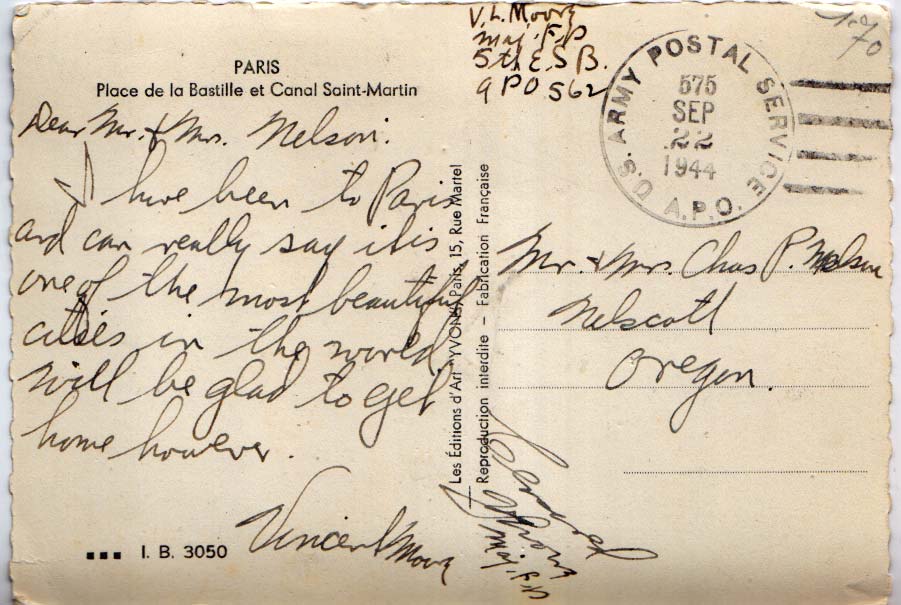 PARIS
Place de la Bastille et Canal Saint-Martin
Dear Mr. & Mrs. Nelson.
I have been to Paris
and can really say it is
one of the most beautiful
cities in the world
will be glad to get
home however.
Vincent Moore
I. B. 3050
Les Éditions d'Art "YVON", Paris, 15, Rue Martel
Reproduction interdite - Fabrication Française
V. L. Moore
Maj. F.D
5th E.S B.
APO 562
U.S. ARMY POSTAL SERVICE
A.P.O.
575
SEP
22
1944
Mr. & Mrs. Chas P. Nelson
Nelscott
Oregon.
Maj. F.D